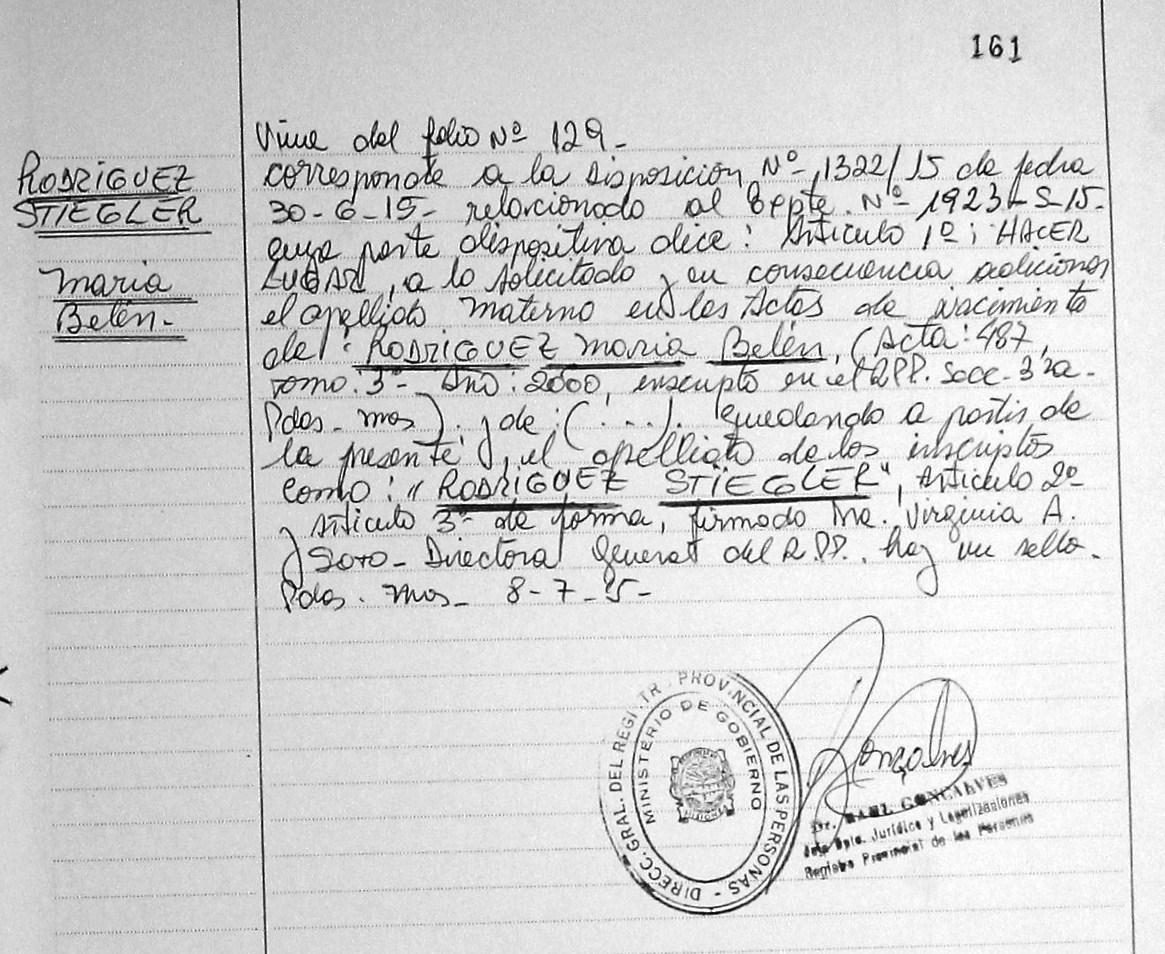 161
RODRIGUEZ
STIEGLER
Maria
Belén.-
Viene del folio Nº 129-
corresponde a la Disposición Nº 1322/15 de fecha
30-6-15- relacionado al Expte. Nº 1923-S-15-
cuya parte dispositiva dice: Articulo 1º; HACER
LUGAR, a lo solicitado y en consecuencia adicionar
el apellido materno en las Actas de nacimiento
de: RODRIGUEZ Maria Belén, (Acta: 487,
Tomo. 3º- Año: 2000, inscripta en el RPP. Secc- 3ra-
Pdas- Mnes) y de: (...). quedando a partir de
la presente, el apellido de los inscriptos
como: "RODRIGUEZ STIEGLER", Articulo 2º
y Articulo 3º de forma, firmado Ma. Virginia A.
Soto- Directora General del R.P.P. hay un sello.
Pdas. Mnes- 8-7-15-
DIRECC. GRAL. DEL REGISTR. PROVINCIAL DE LAS PERSONAS -
MINISTERIO DE GOBIERNO
Goncalves
Dr. GONCALVES
Jefe Dpto. Jurídico y Legalizaciones
Registro Provincial de las Personas